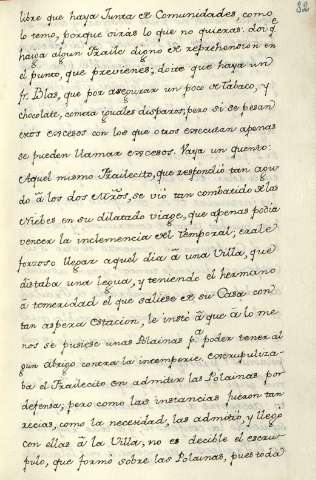 32
libre que haya Junta de Comunidades, como
lo temo, porque oirás lo que no quieras. Doi q.e
hayga algun Frailc.to digno de reprehension en
el punto, que previenes; doite que haya un
fr. Blas, que por asegurar un poco de tabaco, y
chocolate, cometa iguales disparos, pero si se pesan
estos excesos con los que otros executan apenas
se pueden llamar excesos. Vaya un quento:
Aquel mismo Frailecito, que respondió tan agu-
do â los dos Niños, se vió tan combatido de las
Niebes en su dilatado viage, que apenas podia
vencer la inclemencia del temporal; erale
forzoso llegar aquel dia â una Villa, que
distaba una legua, y teniendo el hermano
â temeridad el que saliese de su Casa con
tan aspera estacion, le instó â que â lo me-
nos se pusiese unas Polainas p.a poder tener al
gun abrigo contra la intemperie. escrupuliza-
ba el Frailecito en admitir las Polainas por
defensa; pero como las instancias fueron tan
recias, como la necesidad, las admitió, y llegó
con ellas â la Villa; no es decible el escru-
pulo, que formó sobre las Polainas, pues toda